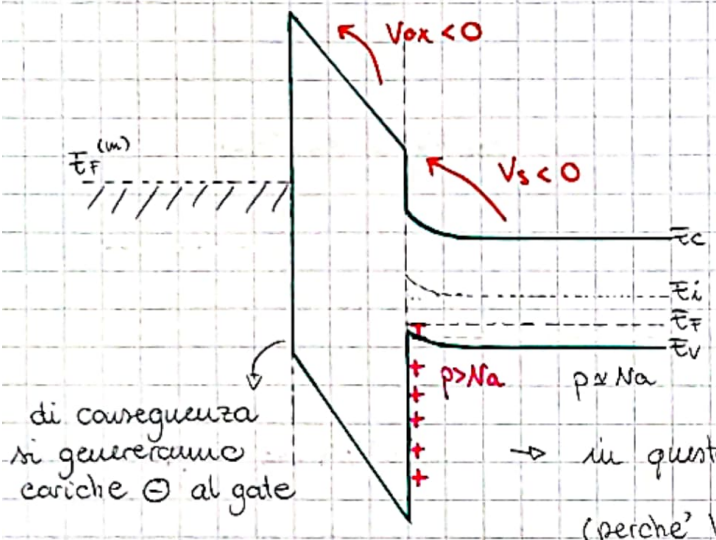 Vox < 0
E_F^(m)
Vs < 0
Ec
Ei
EF
Ev
+
p>Na p≃Na
+
+
+
+
di conseguenza
si genereranno
cariche ⊖ al gate
→ in quest
(perche'